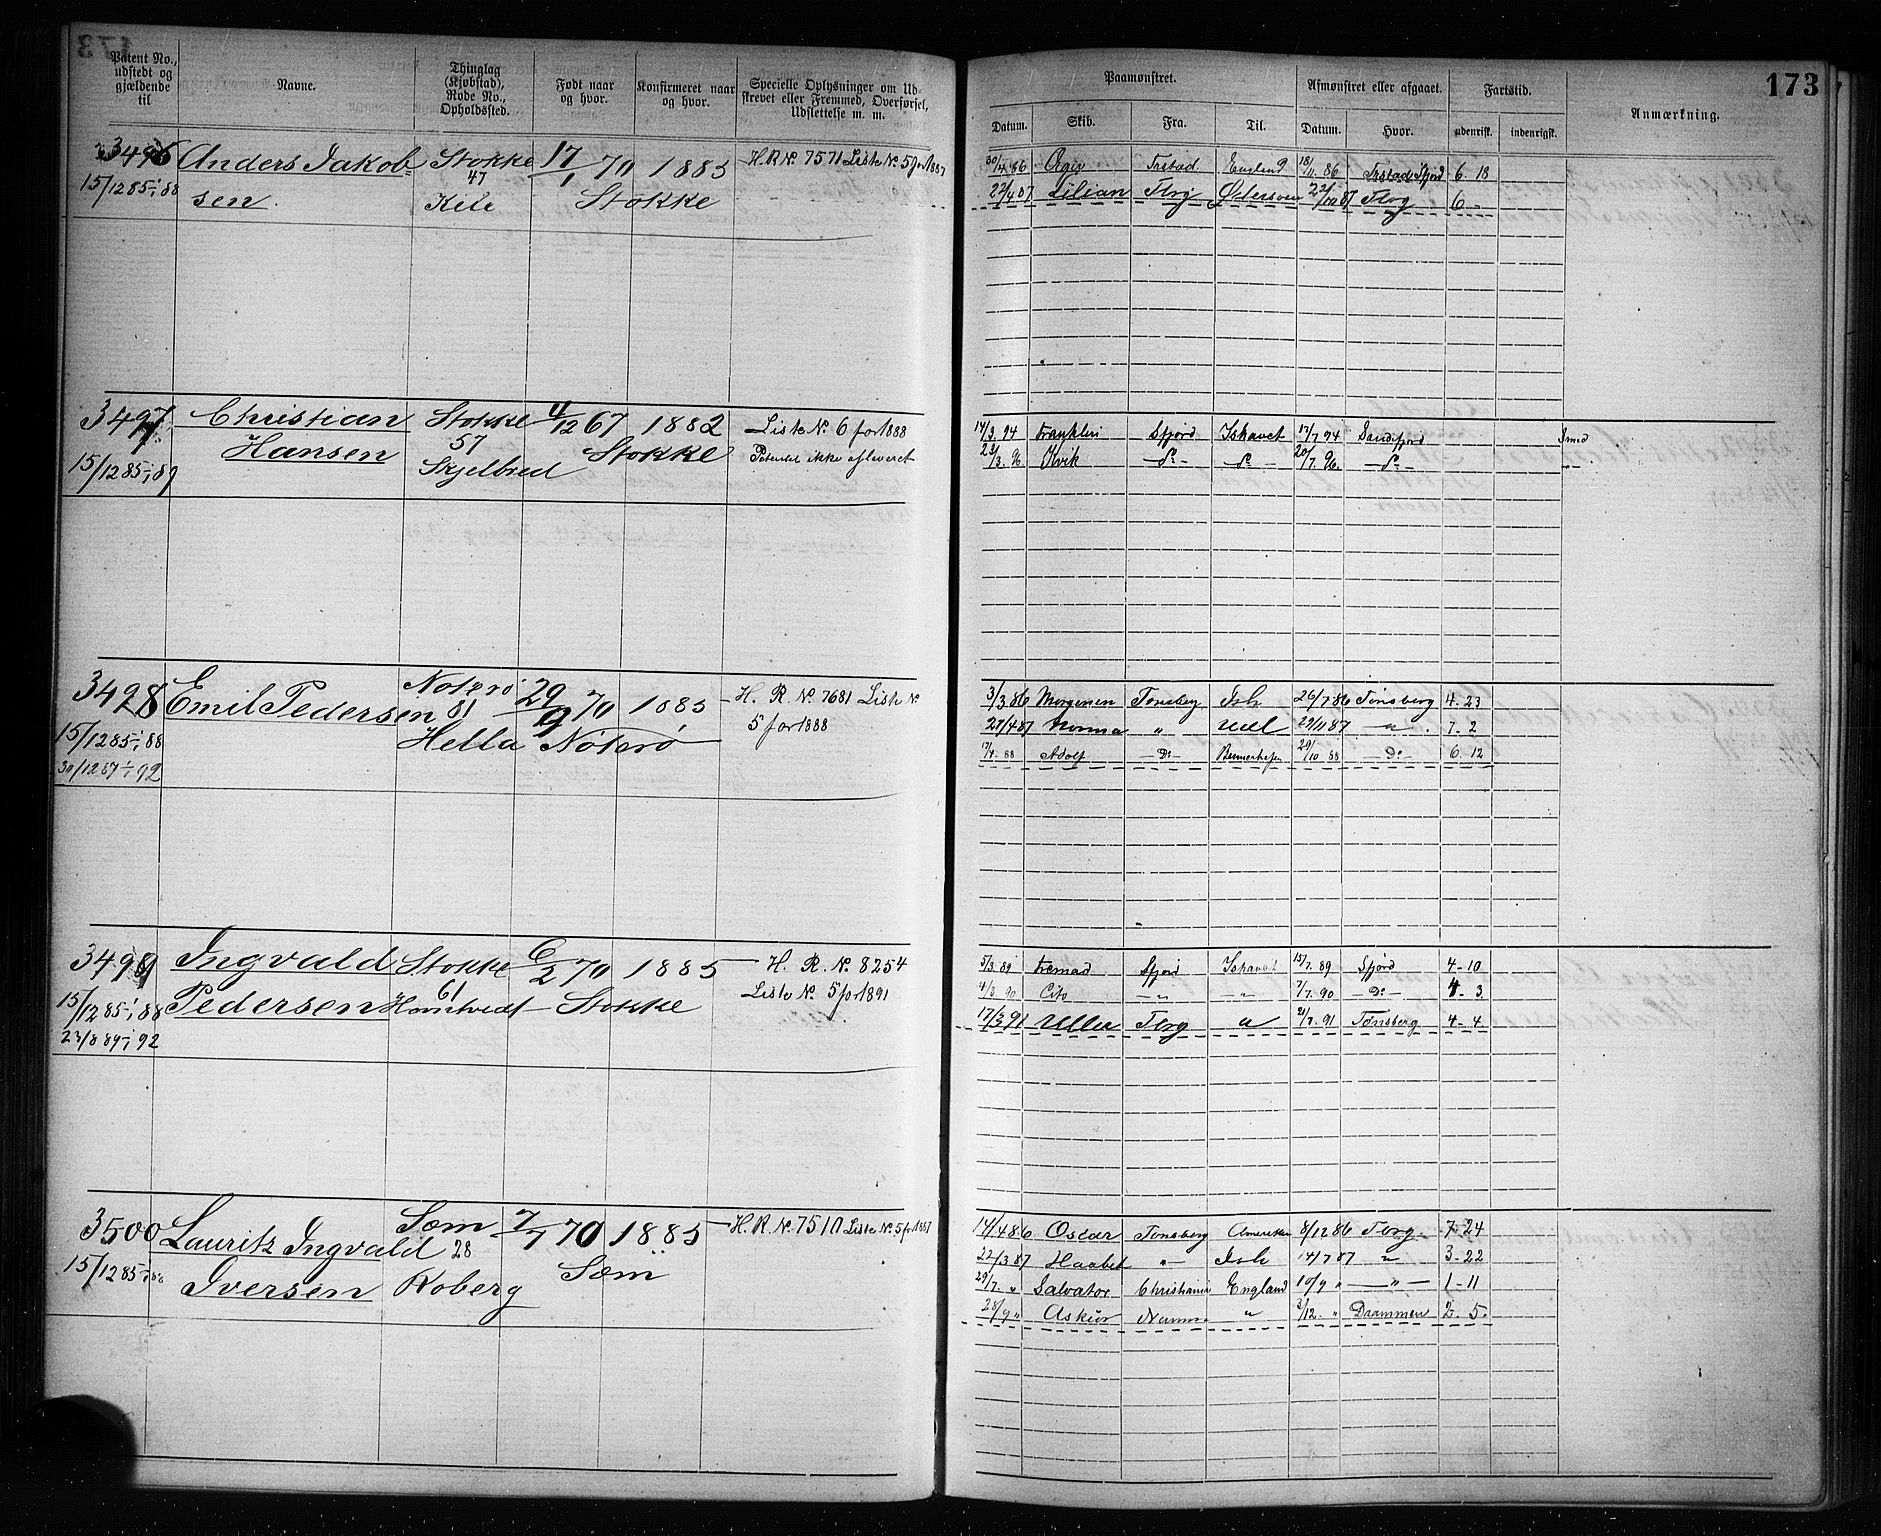 173
Patent No., udstedt og gjældende til
Navne.
Thinglag (Kjøbstad), Rode No., Opholdssted.
Født naar og hvor.
Konfirmeret naar og hvor.
Specielle Oplysninger om Udskrevet eller Fremmed, Overførsel, Udslettelse m. m.
Paamønstret.
Afmønstret eller afgaaet.
Fartstid.
Anmærkning.
Datum. Skib. Fra. Til. Datum. Hvor. udenrigsk. indenrigsk.
3496 Anders Jakob= Stokke 17/1 70 1885 H.R. No. 7571 Liste No. 5 for 1887
15/12 85 - 88 sen. 47 Stokke
30/4 86 Frstad England 18/11 86 6 18
22/4 87 Lilian Tbrg Østersøen 22/10 87 Tbrg 6 -
3497 Christian Stokke 4/12 67 1882 Liste No. 6 for 1888
Hansen 57 Stokke Patentet ikke afleveret
15/12 85 - 87 Skjelbred
14/3 94 Franklin Sfjord Ishavet 17/7 94 Sandefjord
23/3 96 Kvik - Do - - Do - 20/7 96 - Do -
3498 Emil Pedersen Nøterø 29/9 70 1885 H. R. No. 7681 Liste No.
15/12 85 - 88 81 5 for 1888
30/12 87 - 92 Hella Nøterø
3/3 86 Morgenen Tønsberg Ish 26/7 86 Tønsberg 4 - 23
27/4 87 Norma " 29/11 87 " 7 - 2
17/4 88 Adolf - Do - 29/10 88 - Do - 6 12
3499 Ingvald Stokke 6/2 70 1885 H. R. No. 8254
15/12 85 - 88 Pedersen 61 Stokke Liste No. 5 for 1891
23/8 89 - 92
5/3 89 Fremad Sfjord Ishavet 15/7 89 Sfjord 4 - 10
4/3 90 Cito - " - - " - 7/7 90 - Do - 4 - 3
17/3 91 Uller Tbrg " 21/7 91 Tønsberg 4 - 4
3500 Lauritz Ingvald Sæm 7/7 70 1885 H. R. No. 7510 Liste No. 5 for 1887
15/12 85 - 88 Iversen 28 Roberg Sæm
14/4 86 Oscar Tønsberg Amerika 8/12 86 Tbrg 7 - 24
22/3 87 Haabet " - Ish 14/7 87 " 3 - 22
29/7 " Salvator Christiania England 10/9 " - " - 1 - 11
28/9 " Askur " 3/12 " Drammen 2 - 5